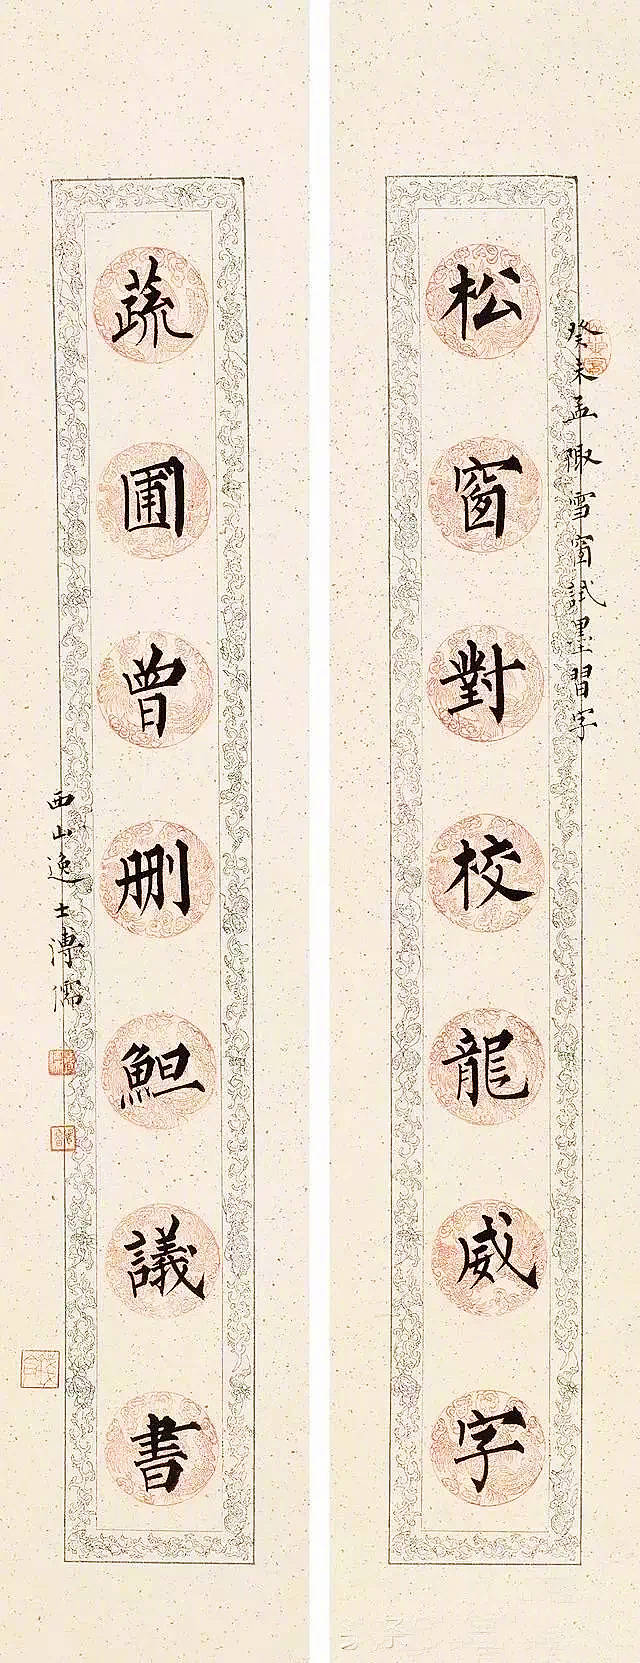 癸未孟陬雪窗試墨習字
松窗對校龍威字
蔬圃曾刪觛議書
西山逸士溥儒